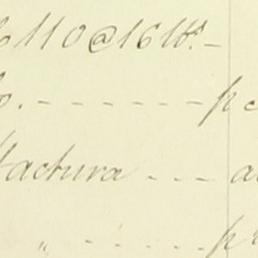 110@16 lbs. -
o. - - - - - - - p c
factura - - - a
" - - - - p